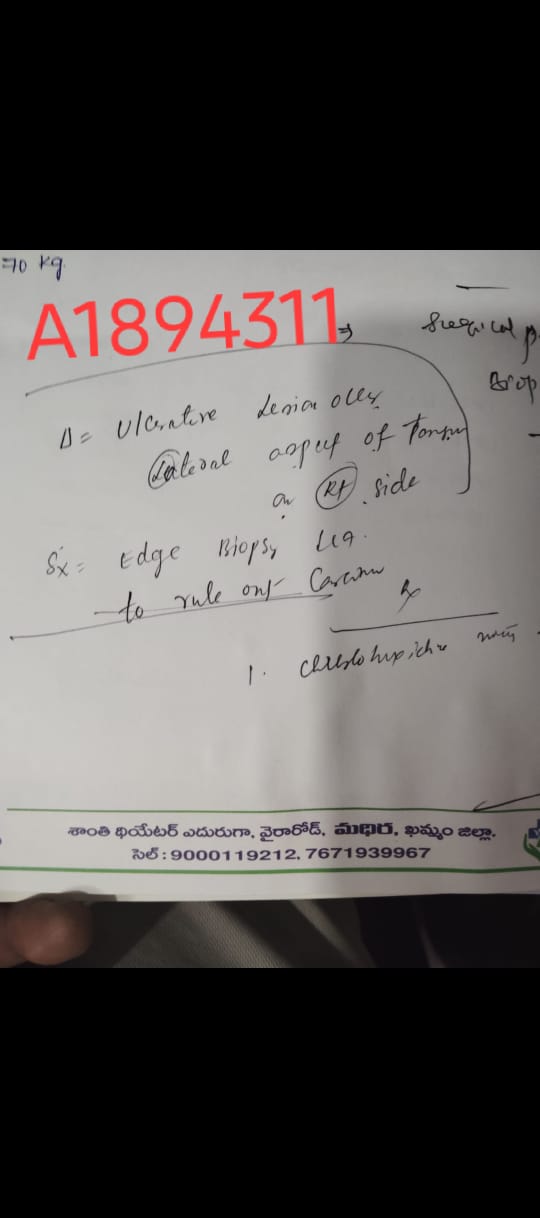 70 kg.
A1894311
Surgical
Δ = Ulcerative Lesion over
Lateral aspect of Tongue
on Rt side
Sx = Edge Biopsy
to rule out Carcinoma
Rx
1.
శాంతి థియేటర్ ఎదురుగా, వైరారోడ్, మధిర, ఖమ్మం జిల్లా.
సెల్ : 9000119212, 7671939967